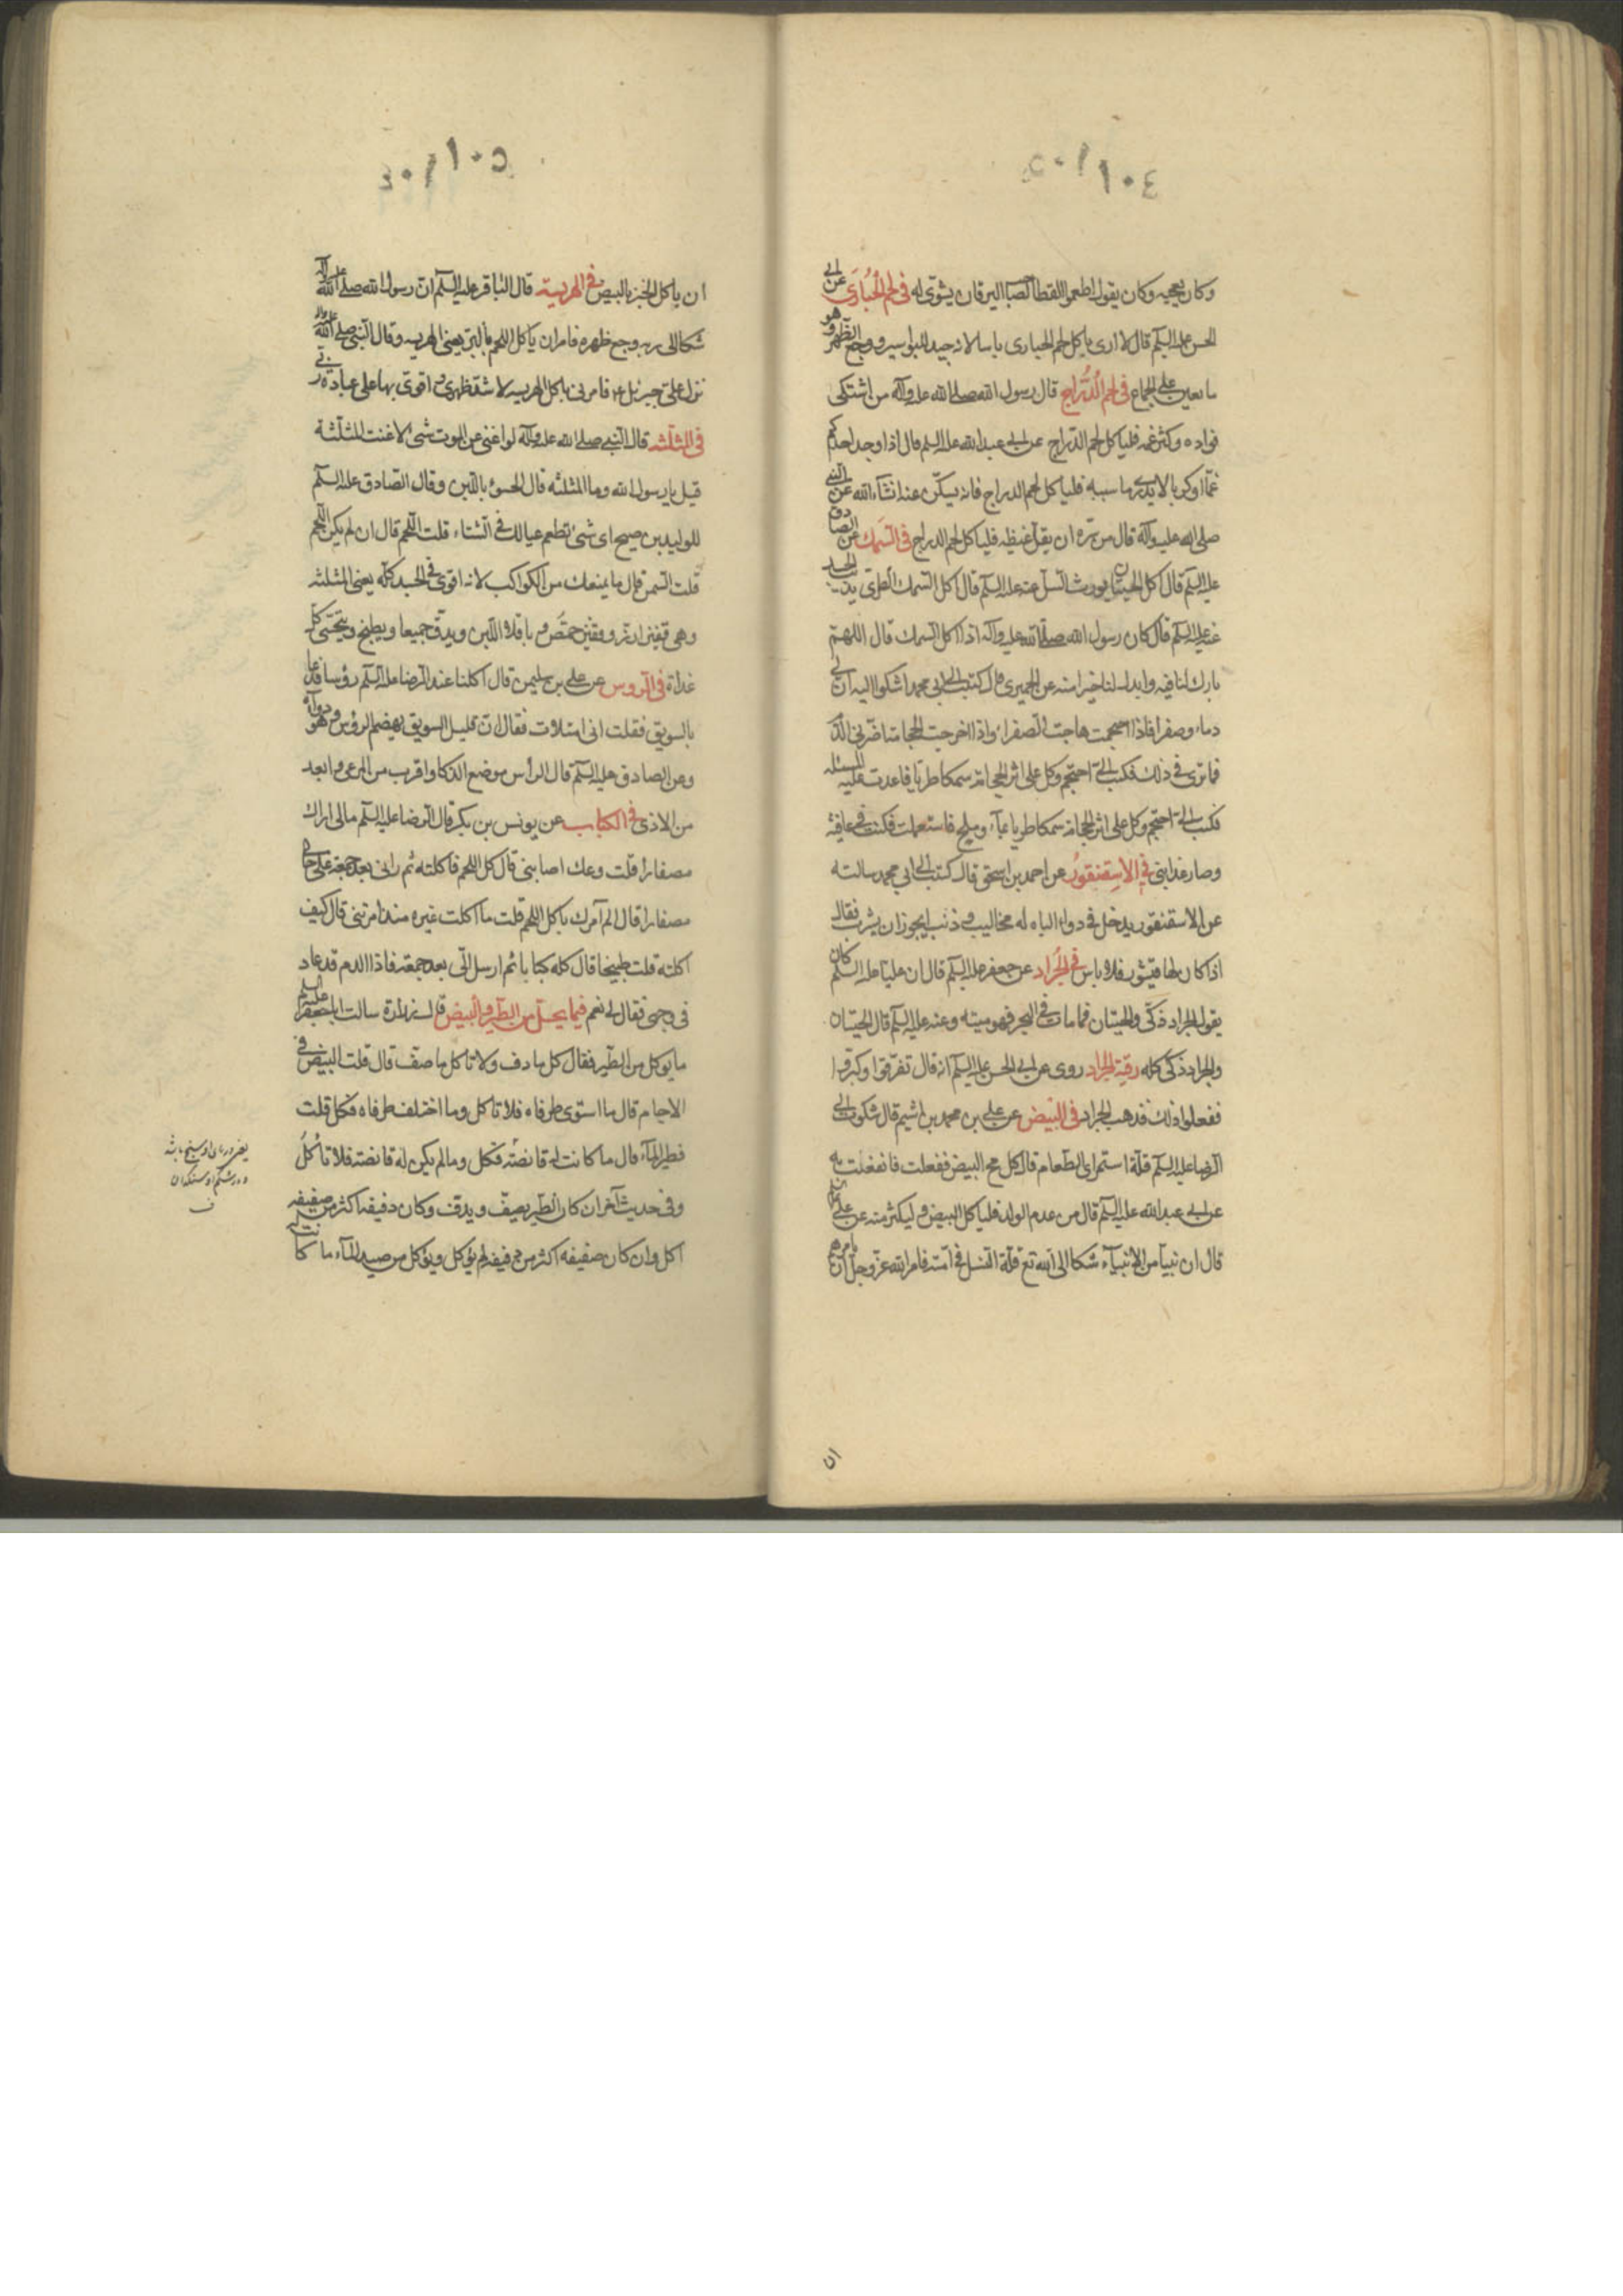 ١٠٤
وكان يعجبه وكان يقول اطعموا القطا لصاحب اليرقان يشوى له في لحم الحبارى عن ابى
الحسن عليه السلم قال لا ارى باكل لحم الحبارى باسا لانه جيد للبواسير ووجع الظهر وهو
ما يعين على الجماع في لحم الدراج قال رسول الله صلى الله عليه وآله من اشتكى
فواده وكثر غمه فلياكل لحم الدراج عن ابى عبد الله عليه السلم قال اذا وجد احدكم
غما او كربا لا يدرى ما سببه فلياكل لحم الدراج فانه يسكن عنه انشاء الله عن النبى
صلى الله عليه وآله قال من سره ان يقل غيظه فلياكل لحم الدراج في السمك عن الصادق
عليه السلم قال اكل الحيتان يورث السل عنه عليه السلم قال اكل السمك الطرى يذيب الجسد
عنه عليه السلم قال كان رسول الله صلى الله عليه وآله اذا اكل السمك قال اللهم
بارك لنا فيه وابدلنا خيرا منه عن الحميرى قال كتبت الى ابى محمد اشكوا اليه ان بى
دماء وصفرا فاذا احتجمت هاجت الصفراء واذا اخرجت الحجامة اضرنى الدم
فما ترى في ذلك فكتب الى احتجم وكل على اثر الحجامة سمكا طريا فاعدت عليه المسئلة
فكتب الى احتجم وكل على اثر الحجامة سمكا طريا بماء وملح فاستعملت فكنت في عافية
وصار غذايى في الاسقنقور عن احمد بن اسحق قال كتبت الى ابى محمد سالته
عن الاسقنقور يدخل في دواء الباه له مخاليب وذنب ايجوز ان يشرب فقال
اذا كان لها قشور فلا باس في الجراد عن جعفر عليه السلم قال ان عليا عليه السلم كان
يقول الجراد ذكى والحيتان فما مات في البحر فهو ميته وعنه عليه السلم قال الحيتان
والجراد ذكى كله رقية الجراد روى عن ابى الحسن عليه السلم انه قال تفرقوا وكبروا
ففعلوا ذلك فذهب الجراد في البيض عن على بن محمد بن اشيم قال شكوت الى
الرضا عليه السلم قلة استمراى الطعام قال كل مح البيض ففعلت فانتفعت به
عن ابى عبد الله عليه السلم قال من عدم الولد فلياكل البيض وليكثر منه عن على عليه السلم
قال ان نبيا من الانبياء شكا الى الله تع قلة النسل في امته فامر الله عز وجل ان يامرهم
ان
١٠٥
ان ياكل الخبز بالبيض في الهريسة قال الباقر عليه السلم ان رسول الله صلى الله عليه وآله
شكا الى ربه وجع ظهره فامر ان ياكل اللحم بالبر يعنى الهريسه وقال النبى صلى الله عليه وآله
نزل على جبرئيل ع فامرنى باكل الهريسه لاشد ظهرى واقوى بها على عبادة ربى
في المثلثه قال النبى صلى الله عليه وآله لو اغنى عن الموت شىء لاغنت المثلثة
قيل يا رسول الله وما المثلثه قال الحسو باللبن وقال الصادق عليه السلم
للوليد بن صبيح اى شىء تطعم عيالك في الشتاء قلت اللحم قال ان لم يكن اللحم
قلت السمن قال ما يمنعك من الكواكب لانه اقوى في الجسد كله يعنى المثلثه
وهى قفيز ارز وقفيز حمص وباقلاء اللبن ويدق جميعا ويطبخ ويتحسى كل
غداة في الروس عن على بن سليمن قال اكلنا عند الرضا عليه السلم رؤسا فدعا
بالسويق فقلت انى امتلات فقال ان قليل السويق يهضم الرؤس وهو دواؤه
وعن الصادق عليه السلم قال الراس موضع الذكاوا قرب من المرعى وابعد
من الاذى في الكباب عن يونس بن بكر قال الرضا عليه السلم مالى اراك
مصفارا قلت وعك اصابنى قال كل اللحم فاكلته ثم رانى بعد جمعة على حالى
مصفارا قال الم آمرك باكل اللحم قلت ما اكلت غيره منذ امرتنى قال كيف
اكلته قلت طبيخا قال كله كبابا ثم ارسل الى بعد جمعة فاذا الدم قد عاد
في وجهى فقال لى نعم فيما يحل من الطير والبيض قال زرارة سالت ابا جعفر عليه السلم
ما يوكل من الطير فقال كل ما دف ولا تاكل ما صف قال قلت البيض في
الاجام قال ما استوى طرفاه فلا تاكل وما اختلف طرفاه فكل قلت
فطير الماء قال ما كانت له قانصة فكل وما لم يكن له قانصة فلا تاكل
وفي حديث آخر ان كان الطير يصف ويدف وكان دفيفه اكثر من صفيفه
اكل وان كان صفيفه اكثر من دفيفه لم يؤكل ويؤكل من صيد الماء ما كانت له